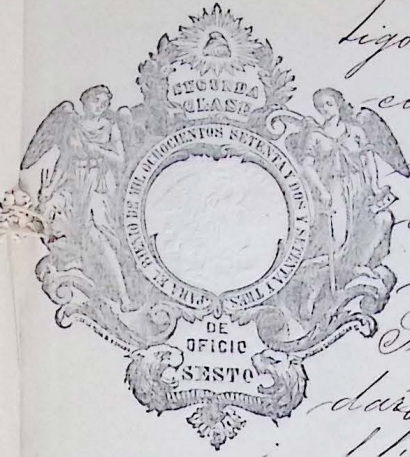 SEGUNDA
CLASE
PARA EL BIENIO DE MIL OCHOCIENTOS SETENTA Y DOS Y SETENTA Y TRES
DE
OFICIO
SESTO